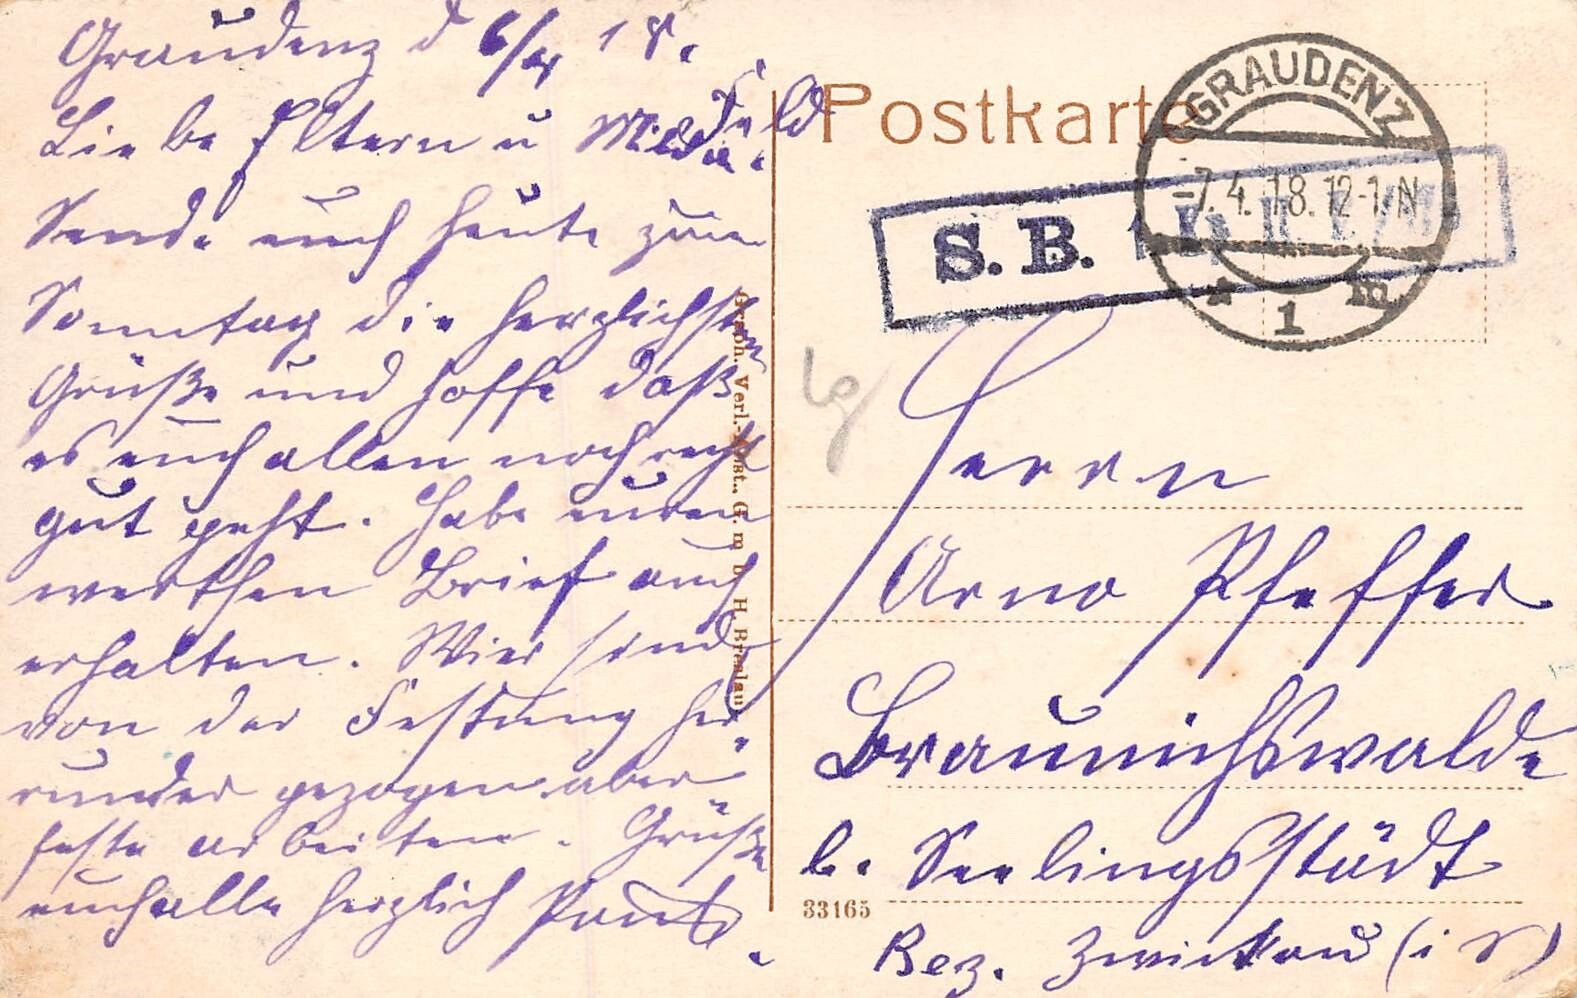 Graudenz d 6/4 18.
Liebe Eltern u Milda.
Sende euch heute zum
Sonntag die herzlichsten
Grüße und hoffe daß
es euch allen noch recht
gut geht. Habe euren
werthen Brief auch
erhalten. Wier sind
von der Festung her-
runder gezogen aber
feste arbeiten. Grüße
euch alle herzlich Paul.
Postkarte
GRAUDENZ
-7.4.18.12-1.N
* 1 m
S. B.
Herrn
Arno Pfeffer
Braunichswalde
b. Seelingsstädt
Bez. Zwickau (i S)
33165
Graph. Verl.-Anst., G. m. b. H. Breslau